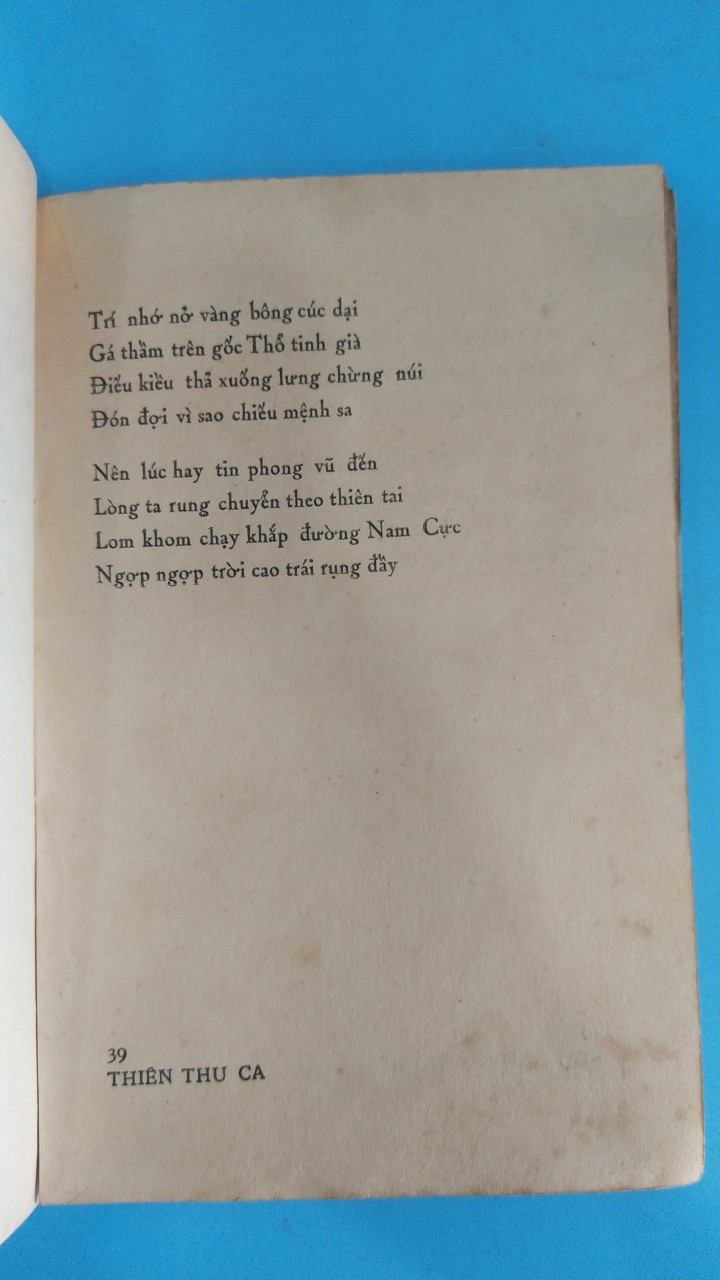 Trí nhớ nở vàng bông cúc dại
Gá thầm trên gốc Thổ tinh già
Điểu kiều thả xuống lưng chừng núi
Đón đợi vì sao chiếu mệnh sa
Nên lúc hay tin phong vũ đến
Lòng ta rung chuyển theo thiên tai
Lom khom chạy khắp đường Nam Cực
Ngợp ngợp trời cao trái rụng đầy
39
THIÊN THU CA